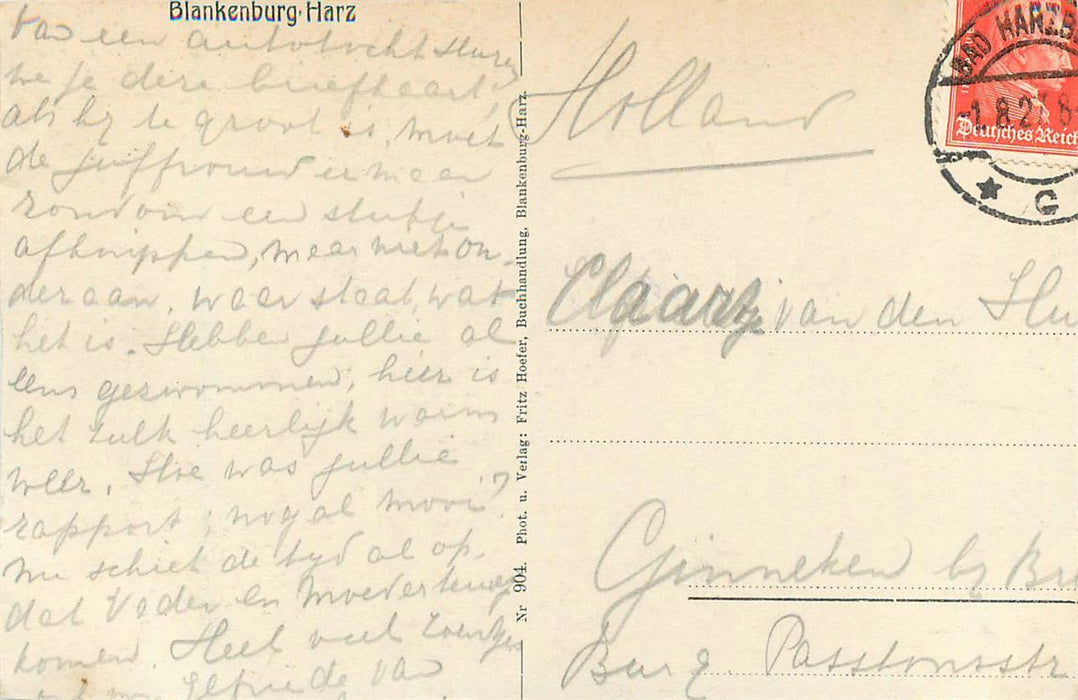 Blankenburg-Harz
Van een autotocht sturen
we je deze briefkaart
als hij te groot is, moet
de juffrouw er maar
rondom een stukje
afknippen, maar niet on-
deraan, waar staat, wat
het is. Hebben jullie al
eens gezwommen; hier is
het zulk heerlijk warm
weer. Hoe was jullie
rapport; nogal mooi?
Nu schiet de tijd al op,
dat Vader en Moeder terug
komen. Heel veel zoentjes
van
Nr 904. Phot. u. Verlag: Fritz Hoefer, Buchhandlung, Blankenburg-Harz.
BAD HARZB
1.8.27.8
Deutsches Reich
G
Holland
Claartje van den Hu
Ginneken bij Bre
Burg. Passtoorsstr